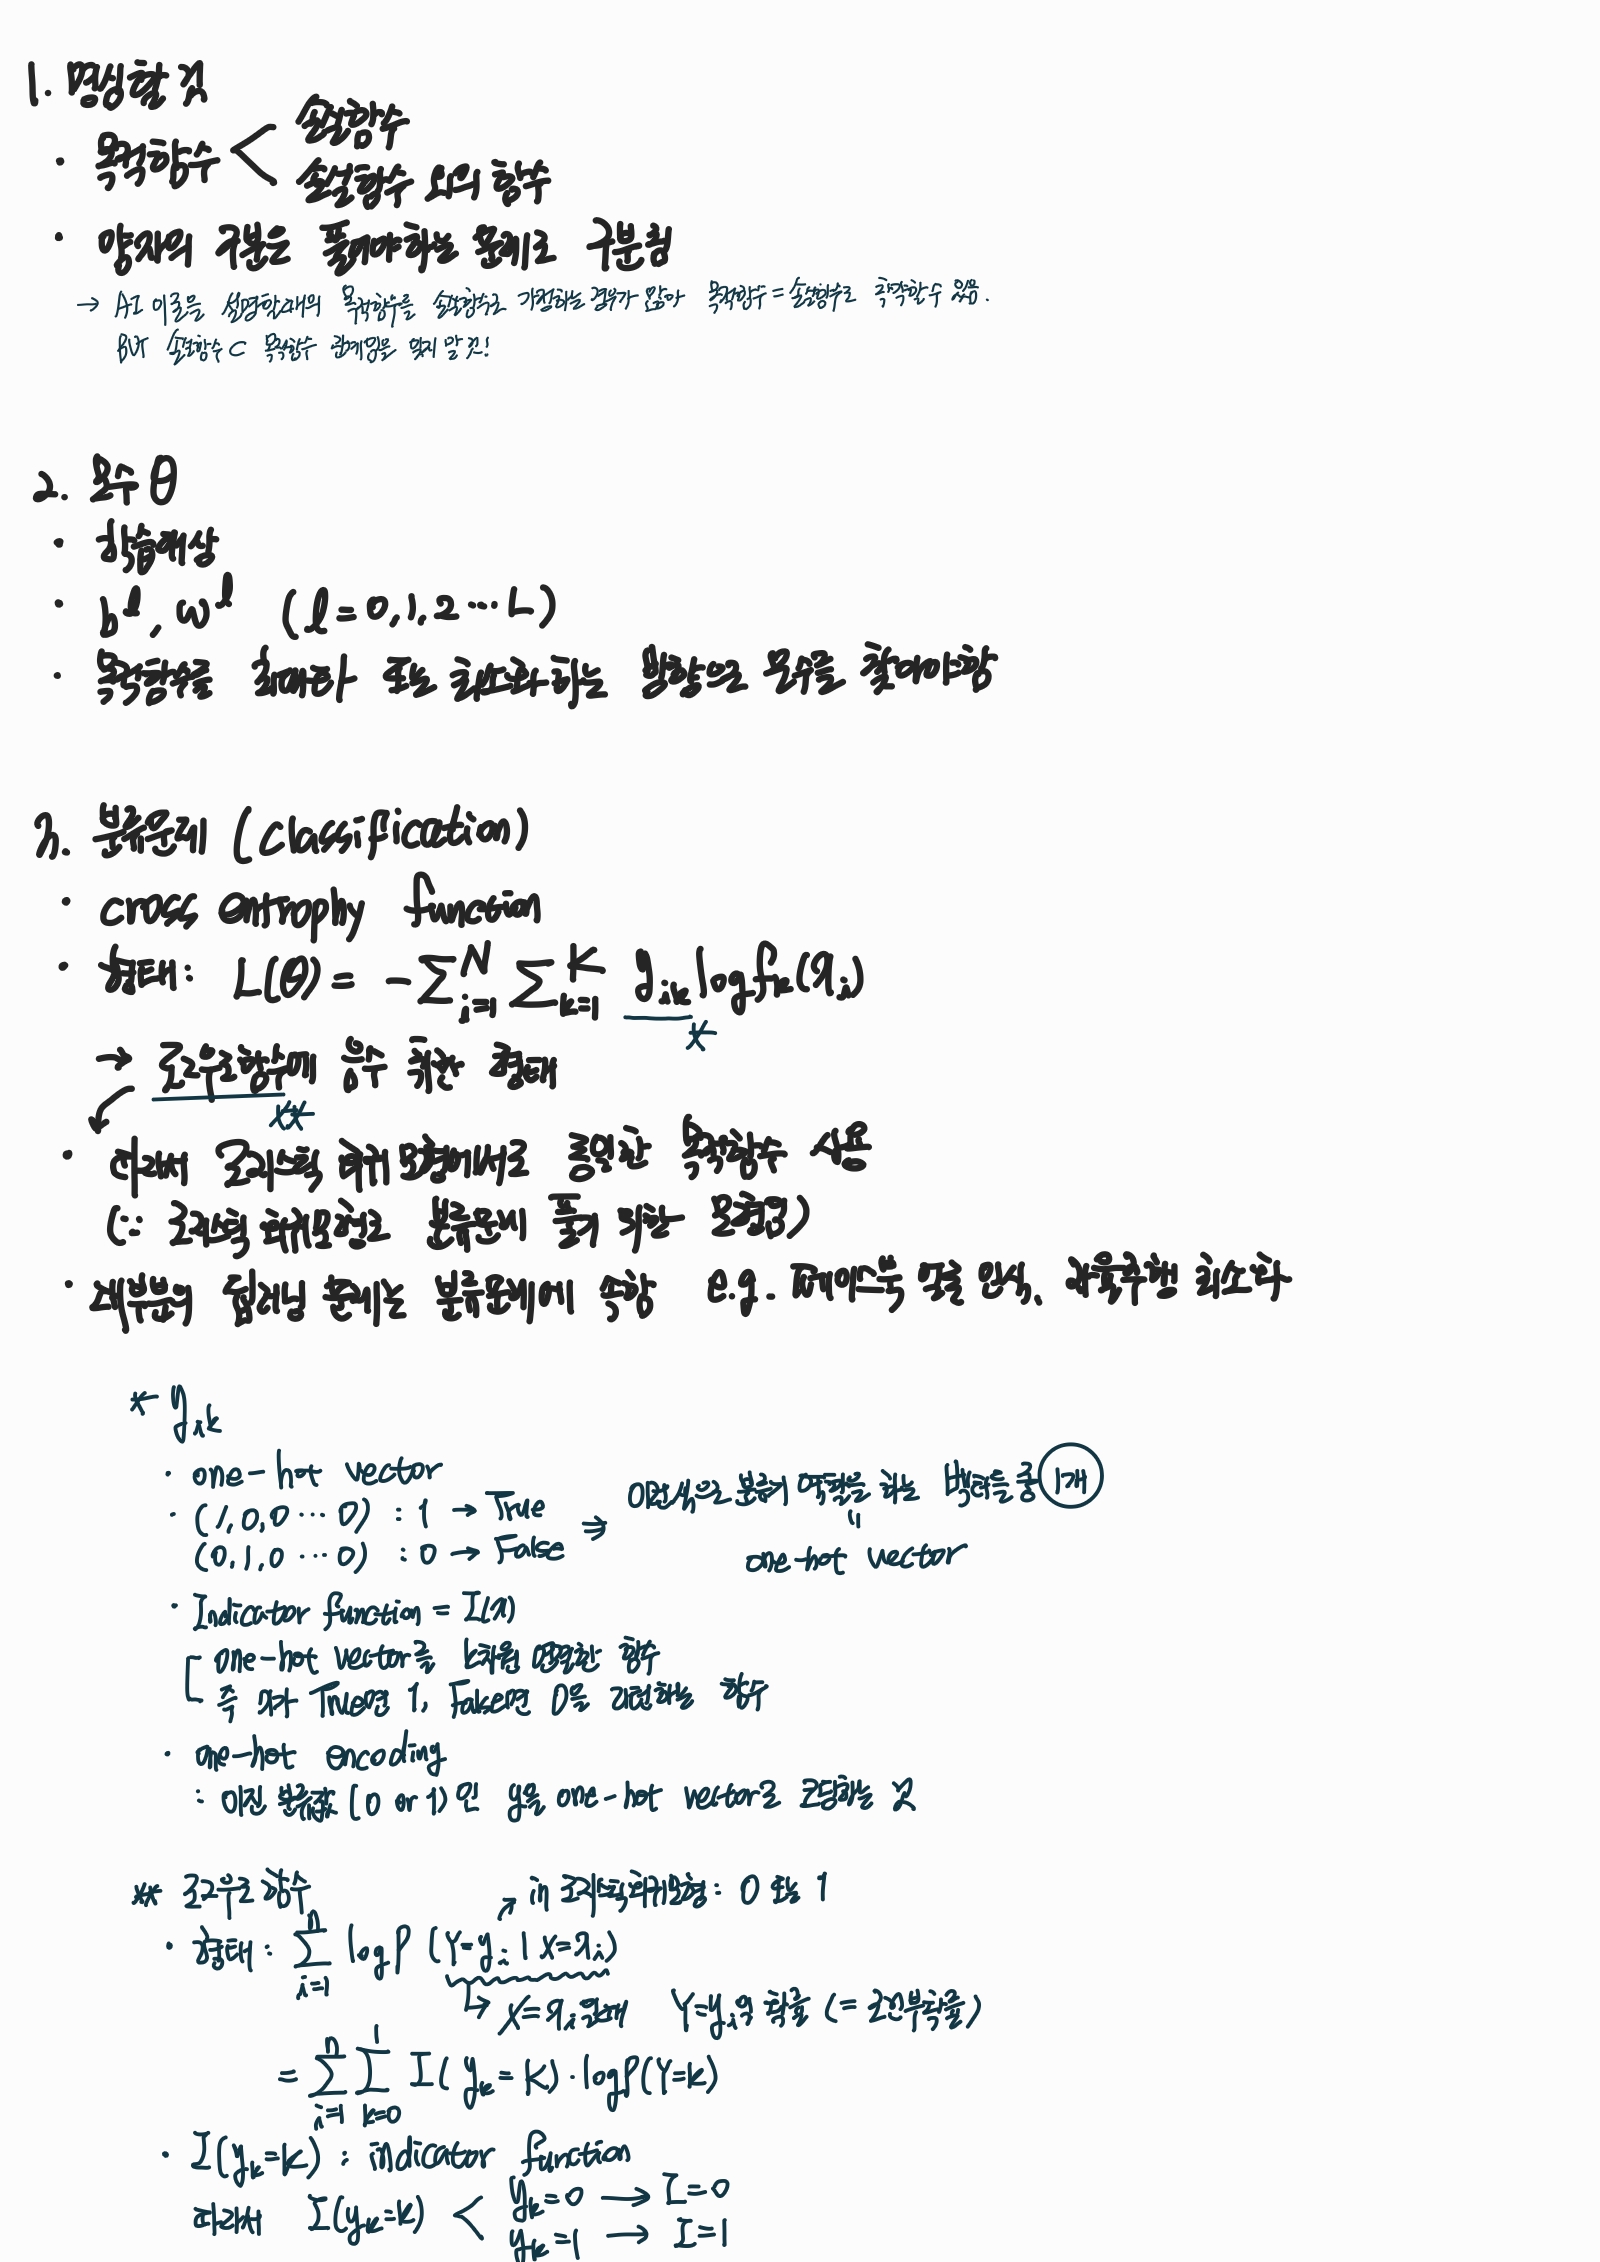 1. 명심할 것
· 목적함수 < 손실함수
손실함수 외의 함수
· 양자의 구분은 풀어야하는 문제로 구분됨
→ AI 이론을 설명할 때의 목적함수를 손실함수로 가정하는 경우가 많아 목적함수 = 손실함수로 착각할 수 있음.
But 손실함수 ⊂ 목적함수 관계임을 잊지 말 것!
2. 모수 θ
· 학습대상
· b^l, w^l (l = 0, 1, 2 ⋯ L)
· 목적함수를 최대화 또는 최소화 하는 방향으로 모수를 찾아야 함
3. 분류문제 (classification)
· cross entrophy function
· 형태: L(θ) = -∑^N_{i=1} ∑^K_{k=1} y_{ik} log f_k(x_i)
*
→ 로그우도함수에 음수 취한 형태
**
· 따라서 로지스틱 회귀 모형에서로 동일한 목적함수 사용
(∵ 로지스틱 회귀모형로 분류문제 풀기 위한 모형임)
· 대부분의 딥러닝 문제는 분류문제에 속함 e.g. 페이스북 얼굴 인식, 자율주행 최소화
* y_{ik}
· one-hot vector
· (1, 0, 0 ⋯ 0) : 1 → True
(0, 1, 0 ⋯ 0) : 0 → False
⇒ 이런식으로 분류기 역할을 하는 벡터들 중 1개
"
one-hot vector
· Indicator function = I(x)
one-hot vector를 k차원 연결한 함수
즉 x가 True면 1, False면 0을 리턴하는 함수
· one-hot encoding
: 이진 분류값 (0 or 1) 인 y을 one-hot vector로 코딩하는 것
** 로그우도 함수
↗ in 로지스틱회귀모형 : 0 또는 1
· 형태 : ∑^n_{i=1} log P (Y=y_i | X=x_i)
↳ X=x_i일 때 Y=y_i일 확률 (= 조건부확률)
= ∑^n_{i=1} ∑^1_{k=0} I( y_k = K) · log P(Y=k)
· I(y_k=K) : indicator function
따라서 I(y_k=k) < y_k=0 → I=0
y_k=1 → I=1